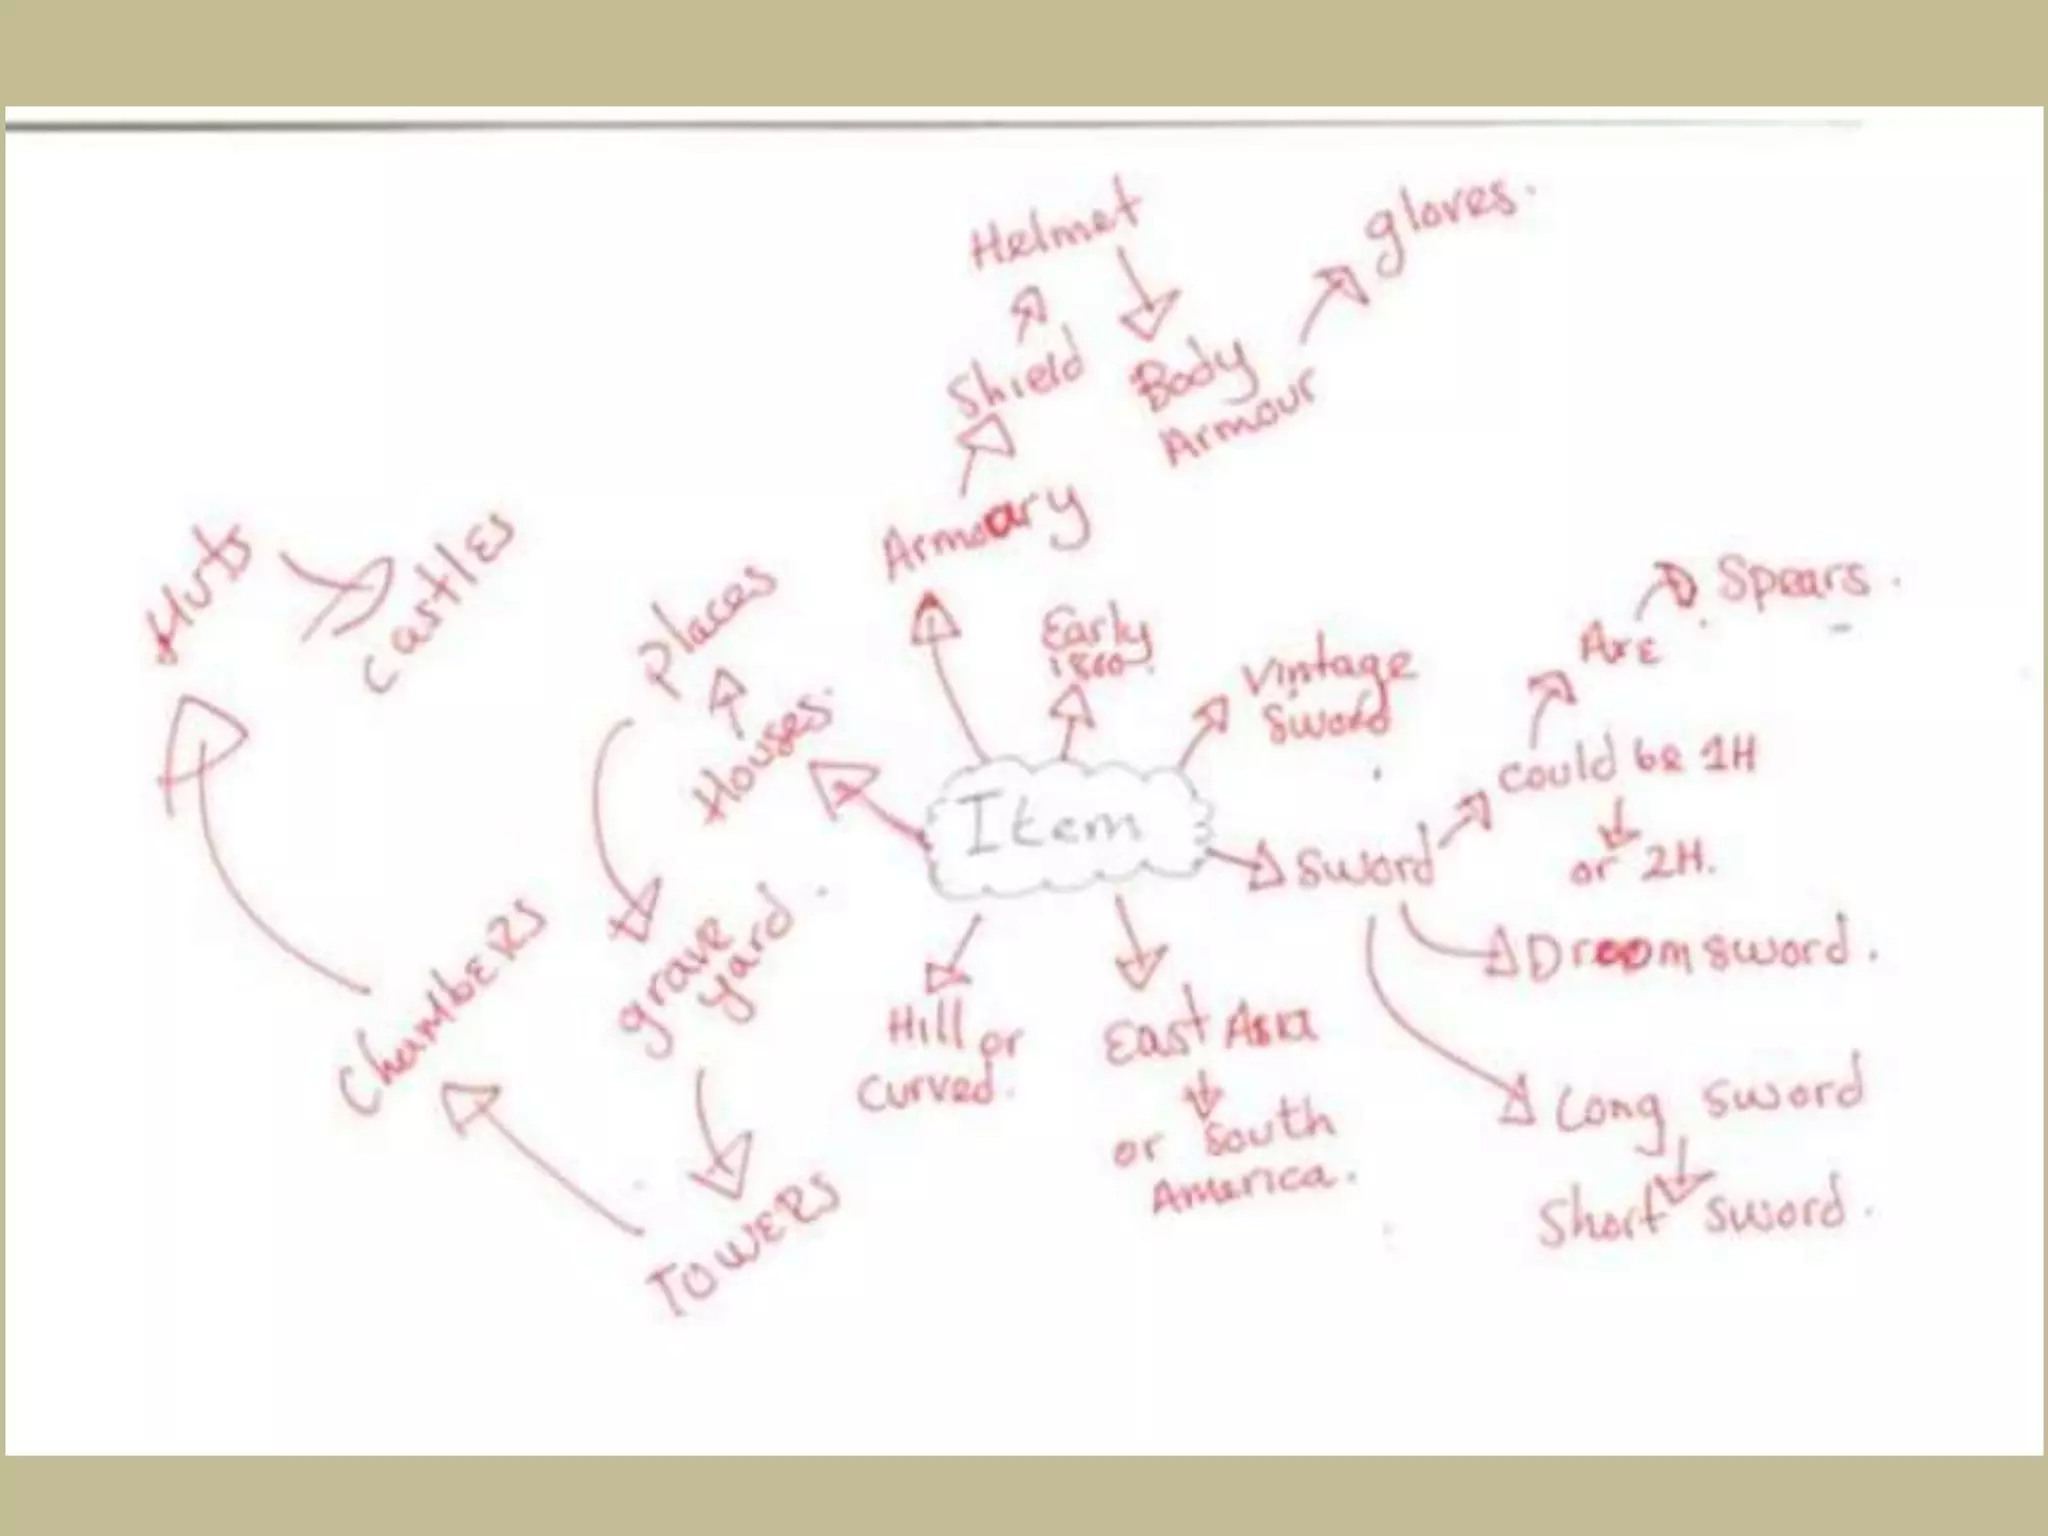 Helmet
gloves.
Shield
Body
Armour
Armoary
Huts
Castles
Places
Houses.
Early
1800.
Vintage
Sword
Axe
Spears.
Could be 1H
or 2H.
Item
Sword
Droom sword.
Long sword
Short sword.
grave
yard.
Chambers
Towers
Hill or
curved.
East Asia
or South
America.